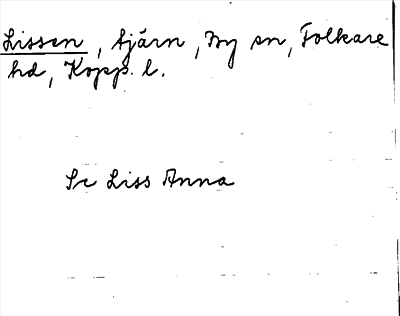 Lissen, tjärn, By sn, Folkare
hd, Kopp. l.
Se Liss Anna